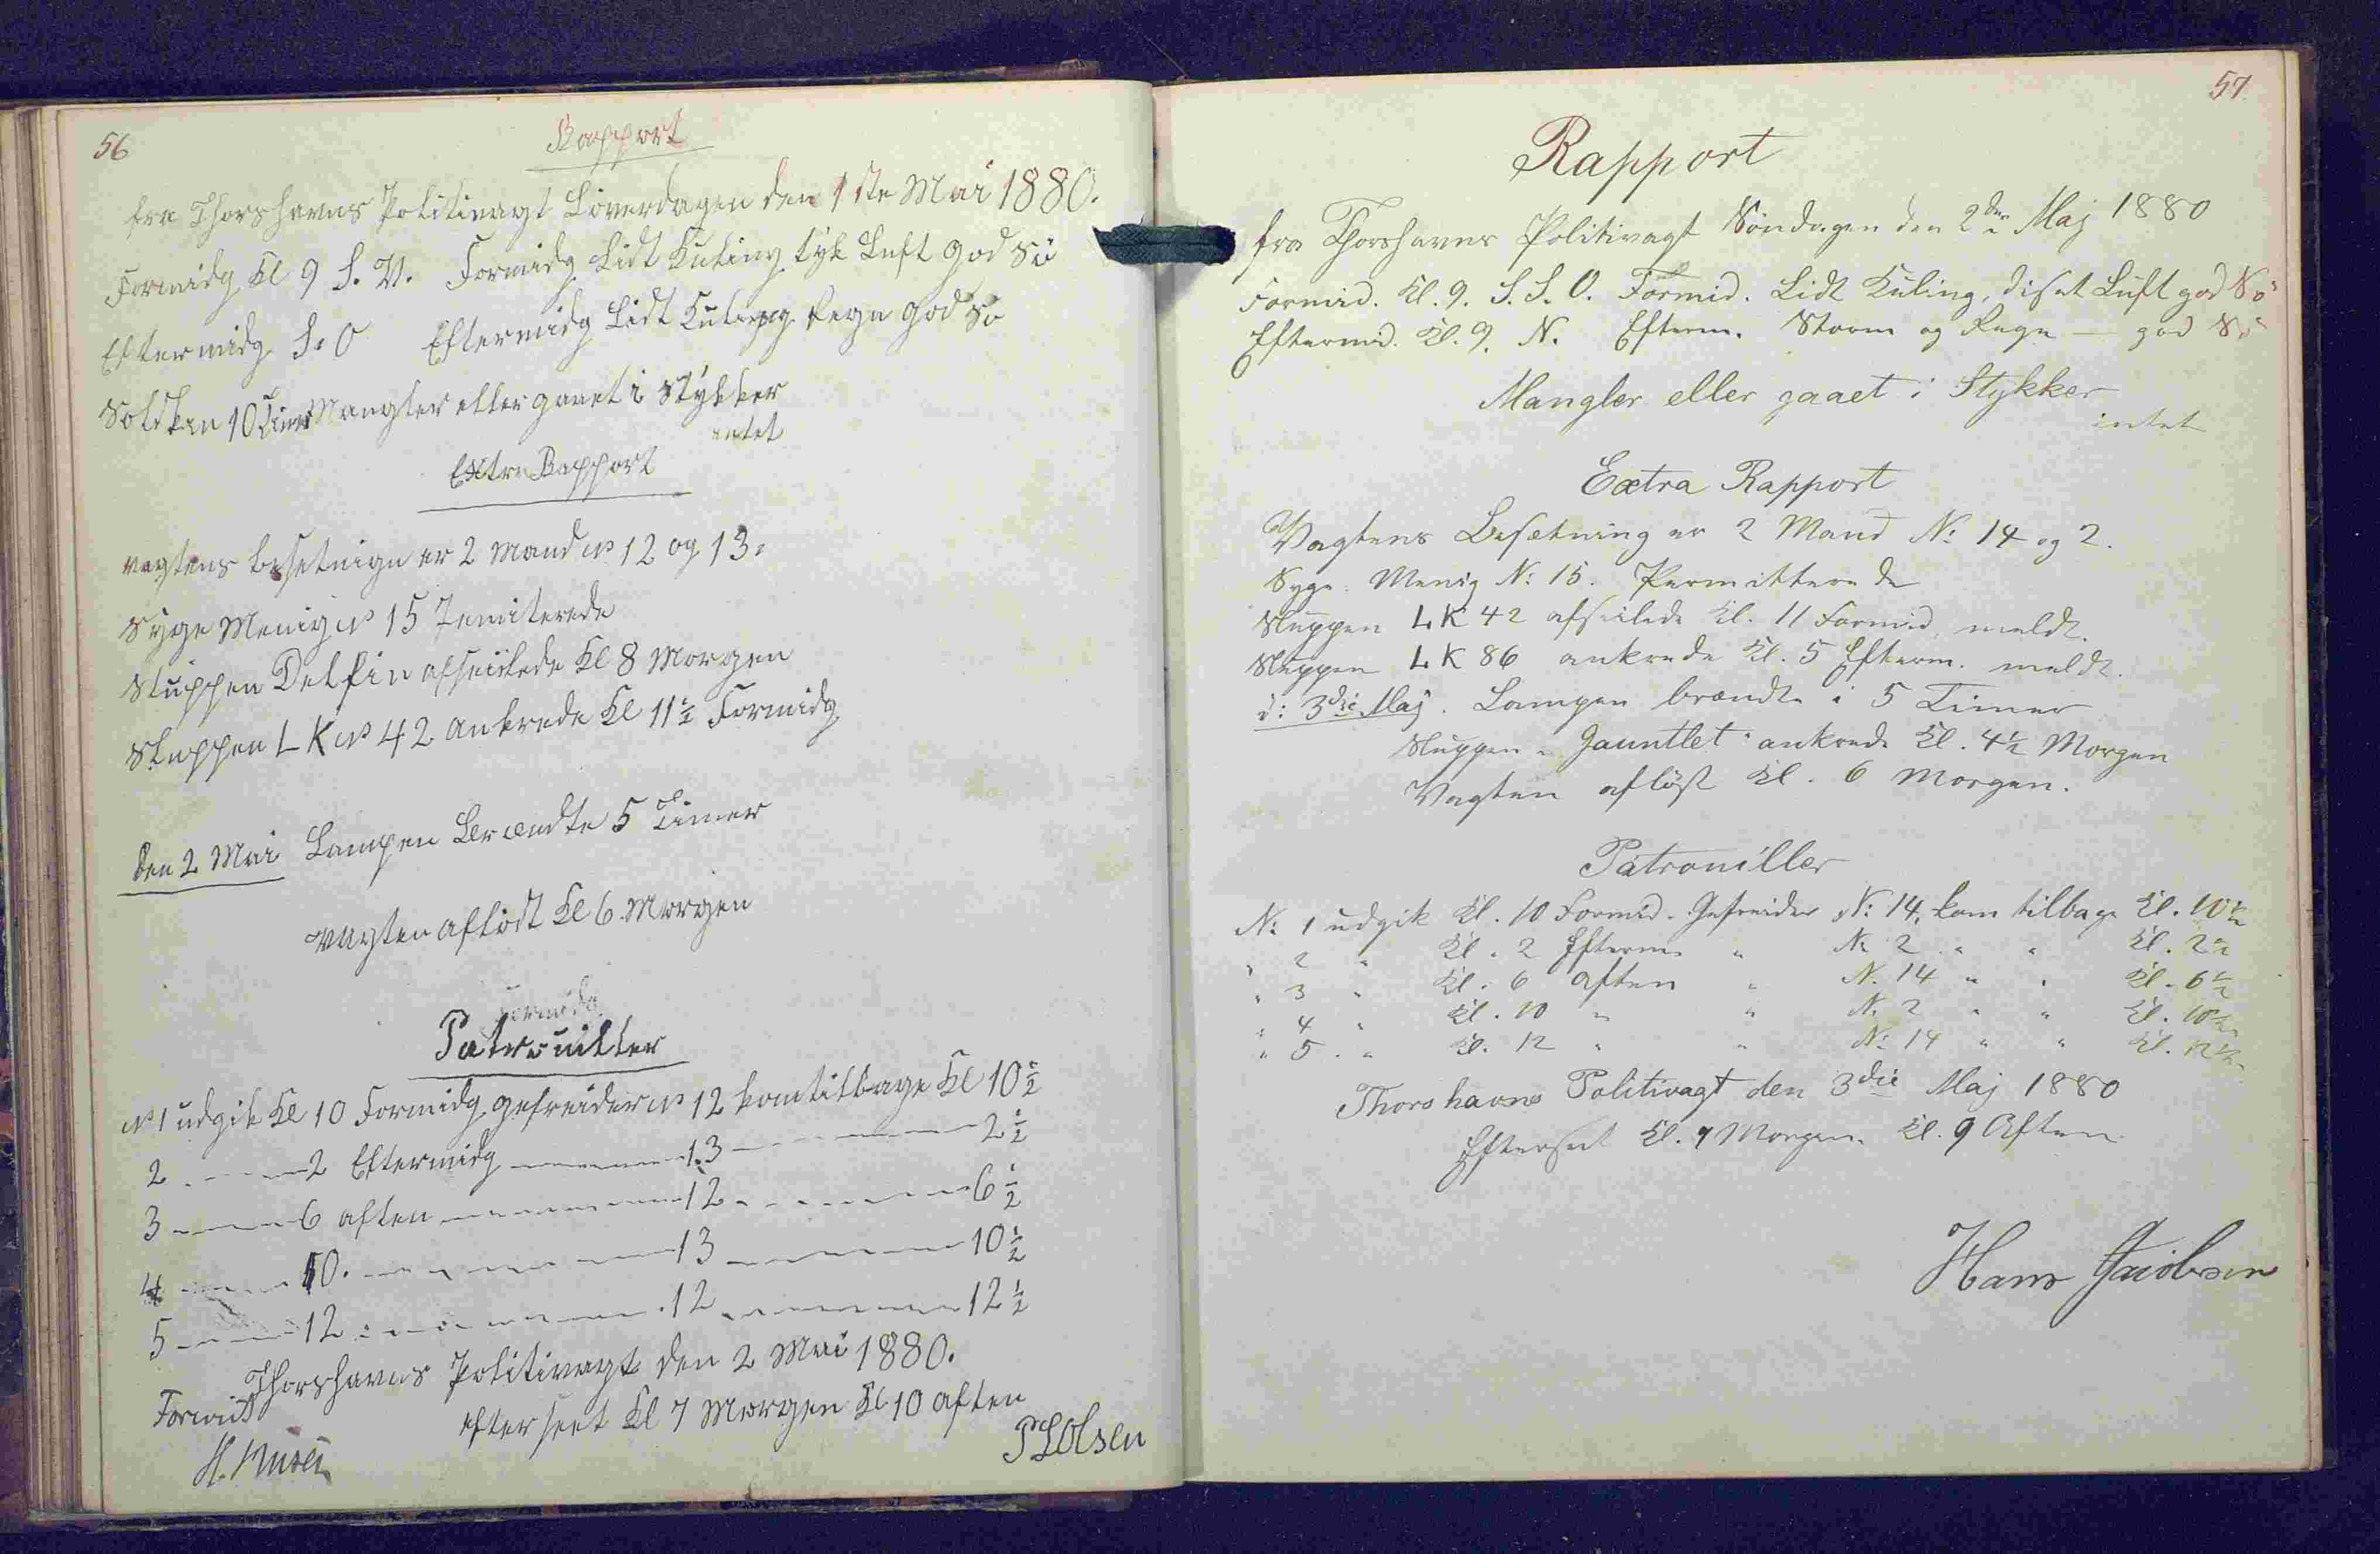 56
Rapport
fra Thorshavns Politivagt Löverdagen den 1ste Mai 1880.
Formidg Kl 9 S. V. Formidg Lidt Kuling tyk Luft god Sö
Eftermidg S. O Eftermidg Lidt Kuling Regn god So
Soldkin 10 Timer Mangler eller gaaet i Stykker
intet
Extra Rapport
vagtens besetnign er 2 Mand No 12 og 13.
Syge Menig No 15
Sluppen Delfin afseilede Kl 8 Morgen
Sluppen LK No 42 ankrede Kl 11½ Formidg
den 2 Mai Lampen Brændte 5 Timer
vagten aflöst Kl 6 Morgen
Formidg
Patrouiller
No 1 udgik Kl 10 Formidg gefreider No 12 kom tilbage Kl 10½
2 2 Eftermidg 13 2½
3 6 aften 12 6½
4 10. 13 10½
5 12 12 12½
Thorshavns Politivagt den 2 Mai 1880.
efterseet Kl 7 Morgen Kl 10 aften
Olsen
57
Rapport
fra Thorshavns Politivagt Söndagen den 2den Maj 1880
Formid. Kl. 9. S. S. O. Formid. Lidt Kuling, diset Luft god Sö
Eftermd. Kl. 9. N. Efterm. Storm og Regn — god Sö
Mangler eller gaaet i Stykker
intet
Extra Rapport
Vagtens Besætning er 2 Mand No 14 og 2.
Syge: Menig No 15. Permitterede
Sluppen LK 42 afseilede Kl. 11 Formid, meldt.
Sluppen LK 86 ankrede Kl. 5 Efterm. meldt.
d: 3die Maj. Lampen brændte i 5 Timer
Sluppen „Gauntlet“ ankrede Kl. 4½ Morgen
Vagten aflöst Kl. 6 Morgen.
Patrouiller
No 1 udgik Kl. 10 Formid. Gefreider No 14, kom tilbage Kl. 10½
" 2 " Kl. 2 Efterm " No 2 " " Kl. 2½
" 3 " Kl. 6 Aften " No 14 " " Kl. 6½
" 4 " Kl. 10 " " No 2 " " Kl. 10½
" 5 " Kl. 12 " " No 14 " " Kl. 12½
Thorshavns Politivagt den 3die Maj 1880
Efterseet Kl. 7 Morgen. Kl. 9 Aften
Hans Jacobsen